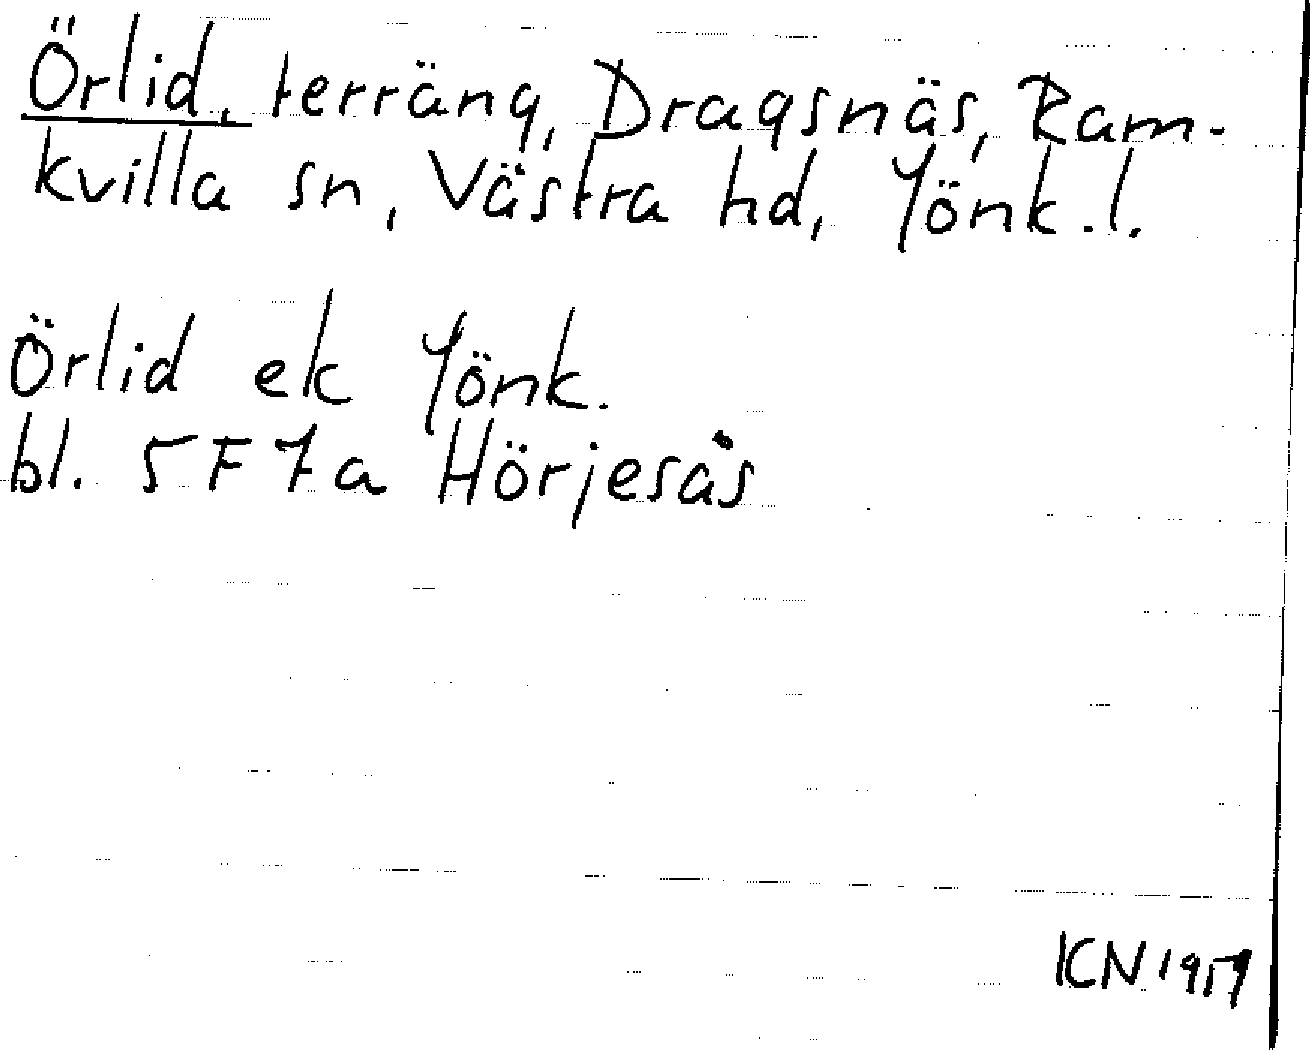 Örlid, terräng, Dragsnäs, Ram-
kvilla sn, Västra hd, Jönk.l.
Örlid ek Jönk.
bl. 5F7a Hörjesås
KCN